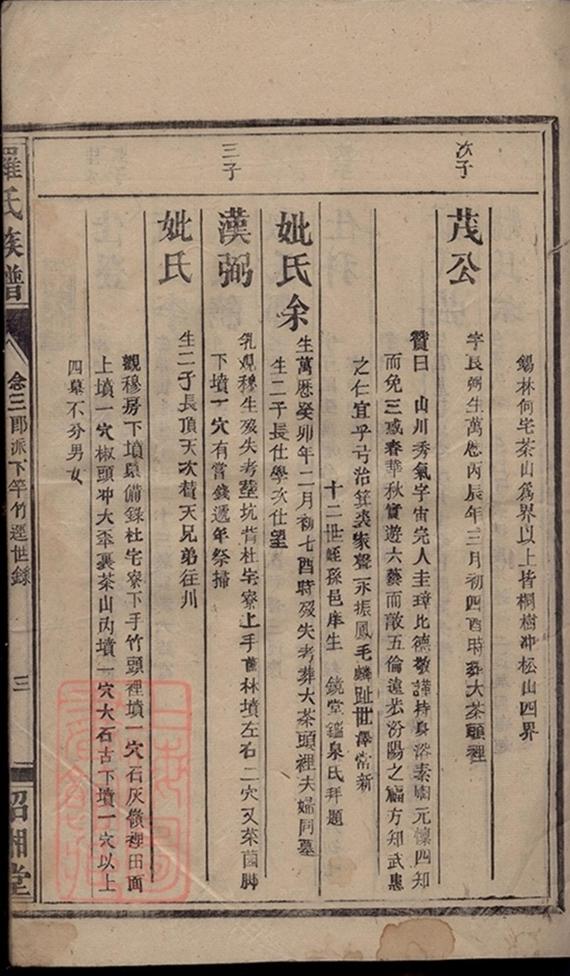 錫林何宅茶山為界以上皆桐樹冲松山四界
次子
茂公
字長弼生萬歷丙辰年三月初四酉時葬大茶頭裡
贊曰 山川秀氣字宙完人圭璋比德敬謹持身浴素園元懷四知
而免三惑春華秋實遊六藝而敵五倫遠恭汾陽之福方知武惠
之仁宜乎弓治箕裘家聲永振鳳毛麟趾世澤常新
十二世姪孫邑庠生 鏡堂鑑泉氏拜題
妣氏余
生萬歷癸卯年二月初七酉時歿失考葬大茶頭裡夫婦同墓
生二子長仕學次仕望
三子
漢弼
乳觀穆生歿失考 坑背杜宅寮上手 林墳左右二穴又菜園脚
下墳一穴有嘗錢遞年祭掃
妣氏
生二子長頂天次贊天兄弟往川
觀穆房下墳墓備錄杜宅寮下手竹頭裡墳一穴石灰 裡田面
上墳一穴椒頭冲大 裏茶山內墳一穴大石古下墳一穴以上
四墓不分男女
羅氏族譜
念三郎派下竿竹逕世錄
三